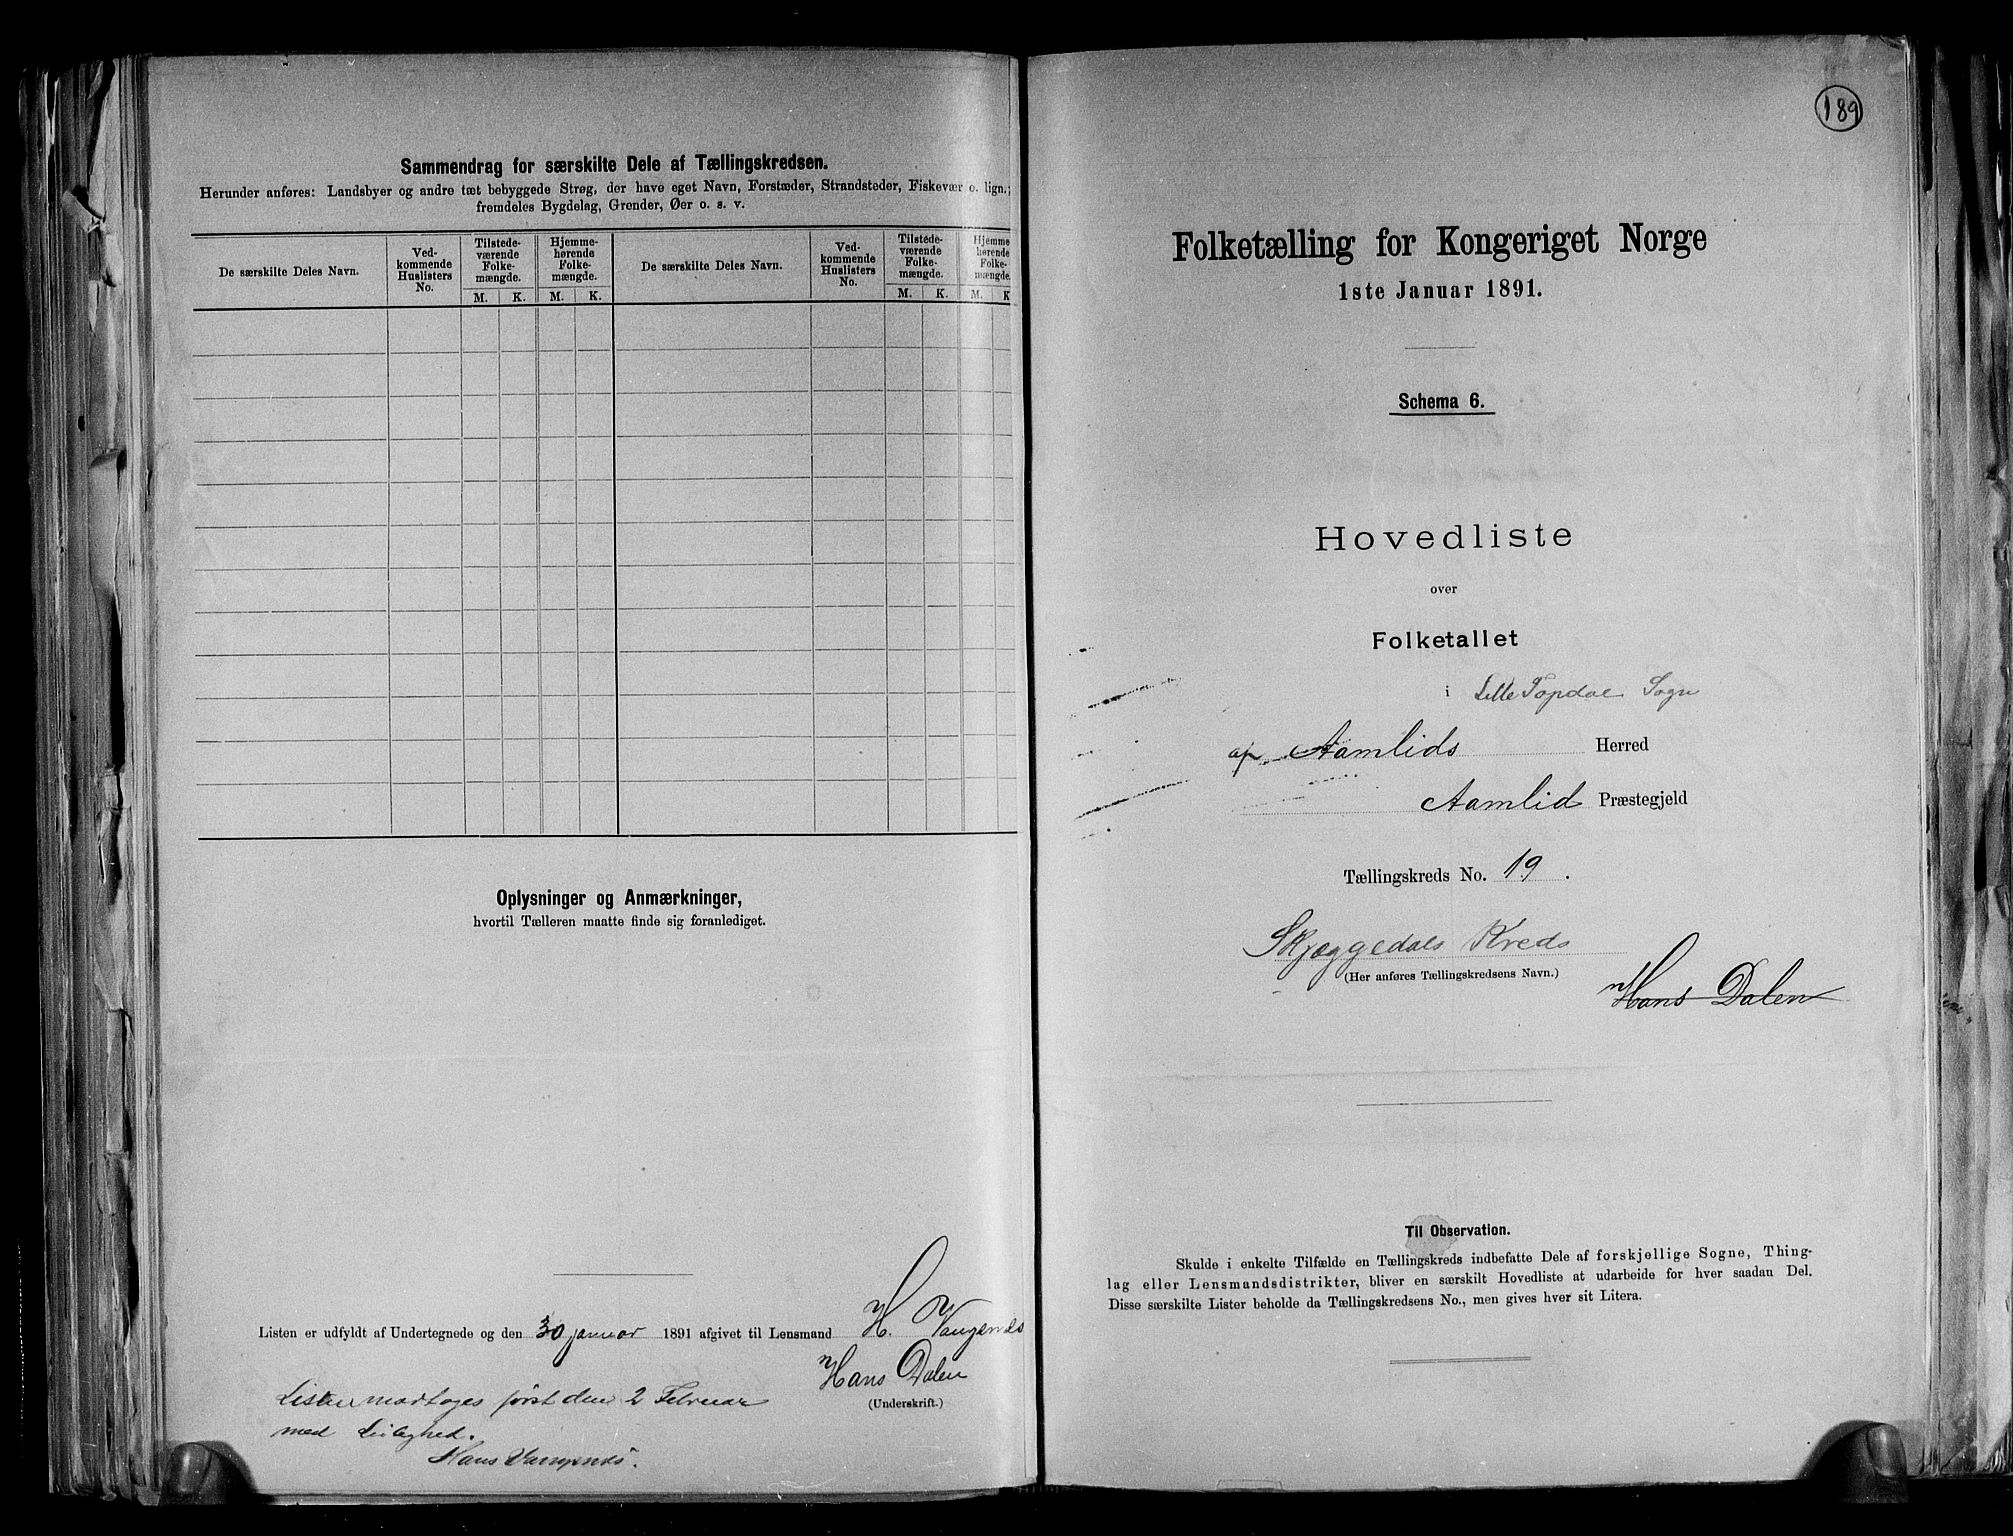 Sammendrag for særskilte Dele af Tællingskredsen.
Herunder anføres: Landsbyer og andre tæt bebyggede Strøg, der have eget Navn, Forstæder, Strandsteder, Fiskevær o. lign.;
fremdeles Bygdelag, Grender, Øer o. s. v.
De særskilte Deles Navn.
Ved-
kommende
Huslisters
No.
Tilstede-
værende
Folke-
mængde.
M. K.
Hjemme-
hørende
Folke-
mængde.
M. K.
De særskilte Deles Navn.
Ved-
kommende
Huslisters
No.
Tilstede-
værende
Folke-
mængde.
M. K.
Hjemme
hørende
Folke-
mængde.
M. K
Oplysninger og Anmærkninger,
hvortil Tælleren maatte finde sig foranlediget.
Listen er udfyldt af Undertegnede og den 30 januar 1891 afgivet til Lensmand H. Vangsnes
Hans Dalen
(Underskrift.)
Listen modtoges først den 2 Februar
med Leilighed.
Hans
189
Folketælling for Kongeriget Norge
1ste Januar 1891.
Schema 6.
Hovedliste
over
Folketallet
i Lille Topdal Sogn
af Aamlids Herred
Aamlid Præstegjeld
Tællingskreds No. 19.
Skjæggedals Kreds
(Her anføres Tællingskredsens Navn.)
Hans Dalen
Til Observation.
Skulde i enkelte Tilfælde en Tællingskreds indbefatte Dele af forskjellige Sogne, Thing-
lag eller Lensmandsdistrikter, bliver en særskilt Hovedliste at udarbeide for hver saadan Del.
Disse særskilte Lister beholde da Tællingskredsens No., men gives hver sit Litera.